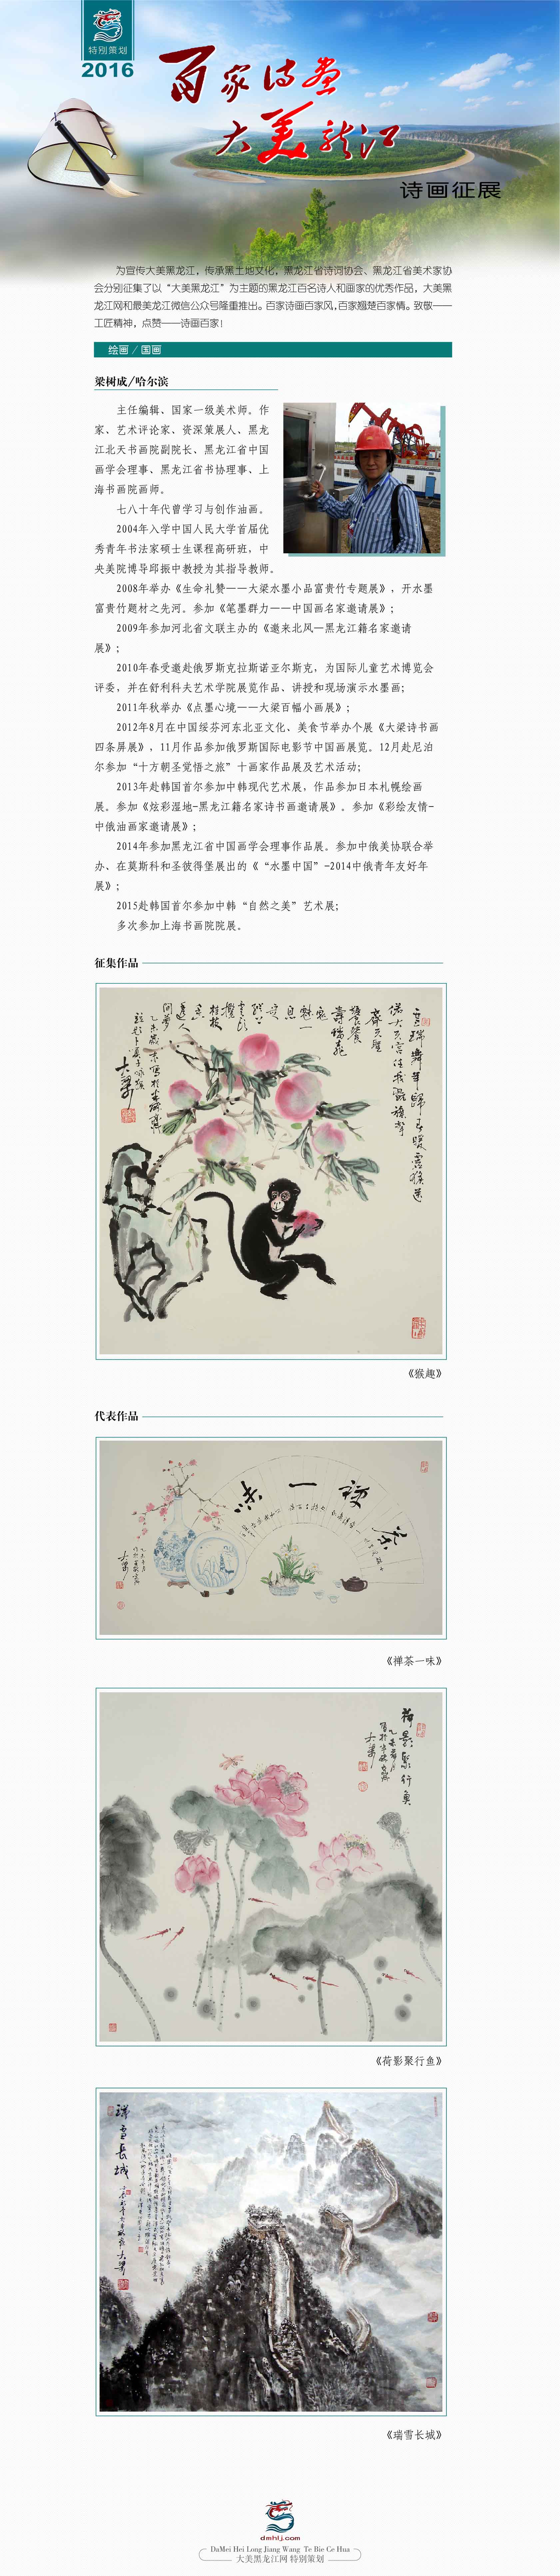 特别策划
2016
百家诗画
大美龙江
诗画征展
为宣传大美黑龙江，传承黑土地文化，黑龙江省诗词协会、黑龙江省美术家协
会分别征集了以“大美黑龙江”为主题的黑龙江百名诗人和画家的优秀作品，大美黑
龙江网和最美龙江微信公众号隆重推出。百家诗画百家风，百家翘楚百家情。致敬——
工匠精神，点赞——诗画百家！
绘画 / 国画
梁树成/哈尔滨
主任编辑、国家一级美术师。作
家、艺术评论家、资深策展人、黑龙
江北天书画院副院长、黑龙江省中国
画学会理事、黑龙江省书协理事、上
海书画院画师。
七八十年代曾学习与创作油画。
2004年入学中国人民大学首届优
秀青年书法家硕士生课程高研班，中
央美院博导邱振中教授为其指导教师。
2008年举办《生命礼赞——大梁水墨小品富贵竹专题展》，开水墨
富贵竹题材之先河。参加《笔墨群力——中国画名家邀请展》；
2009年参加河北省文联主办的《邀来北风—黑龙江籍名家邀请
展》；
2010年春受邀赴俄罗斯克拉斯诺亚尔斯克，为国际儿童艺术博览会
评委，并在舒利科夫艺术学院展览作品、讲授和现场演示水墨画；
2011年秋举办《点墨心境——大梁百幅小画展》；
2012年8月在中国绥芬河东北亚文化、美食节举办个展《大梁诗书画
四条屏展》，11月作品参加俄罗斯国际电影节中国画展览。12月赴尼泊
尔参加“十方朝圣觉悟之旅”十画家作品展及艺术活动；
2013年赴韩国首尔参加中韩现代艺术展，作品参加日本札幌绘画
展。参加《炫彩湿地-黑龙江籍名家诗书画邀请展》。参加《彩绘友情-
中俄油画家邀请展》；
2014年参加黑龙江省中国画学会理事作品展。参加中俄美协联合举
办、在莫斯科和圣彼得堡展出的《“水墨中国”-2014中俄青年友好年
展》；
2015赴韩国首尔参加中韩“自然之美”艺术展；
多次参加上海书画院院展。
征集作品
大梁
《猴趣》
代表作品
茶禅一味
大梁
《禅茶一味》
荷影聚行鱼
大梁
《荷影聚行鱼》
瑞雪長城
大梁
《瑞雪长城》
dmhlj.com
DaMei Hei Long Jiang Wang Te Bie Ce Hua
大美黑龙江网 特别策划